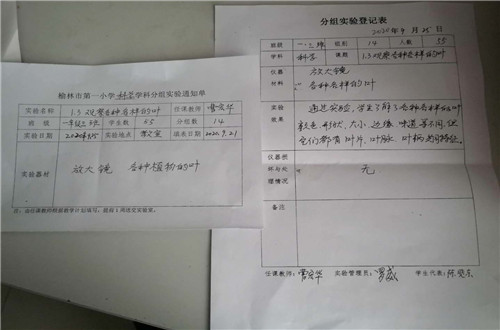 榆林市第一小学科学学科分组实验通知单
实验名称 1.3观察各种各样的叶 任课教师 曹定华
班级 一年级二班 学生数 55 分组数 14
实验日期 2020.9.25 实验地点 填表日期 2020.9.21
实验器材 放大镜 各种植物的叶
注:由任课教师根据教学计划填写,提前1周送交实验室。
分组实验登记表
2020年9月25日
班级 一.二班 组别 14 人数 55
学科 科学 课题 1.3观察各种各样的叶
仪器材料 放大镜
各种各样的叶
实验效果 通过实验,学生了解了各种各样的叶
颜色、形状、大小、边缘、味道等不同,但
它们都有叶片、叶脉、叶柄
仪器损坏与处理情况 无
备注
任课教师: 曹定华 实验管理员: 学生代表: